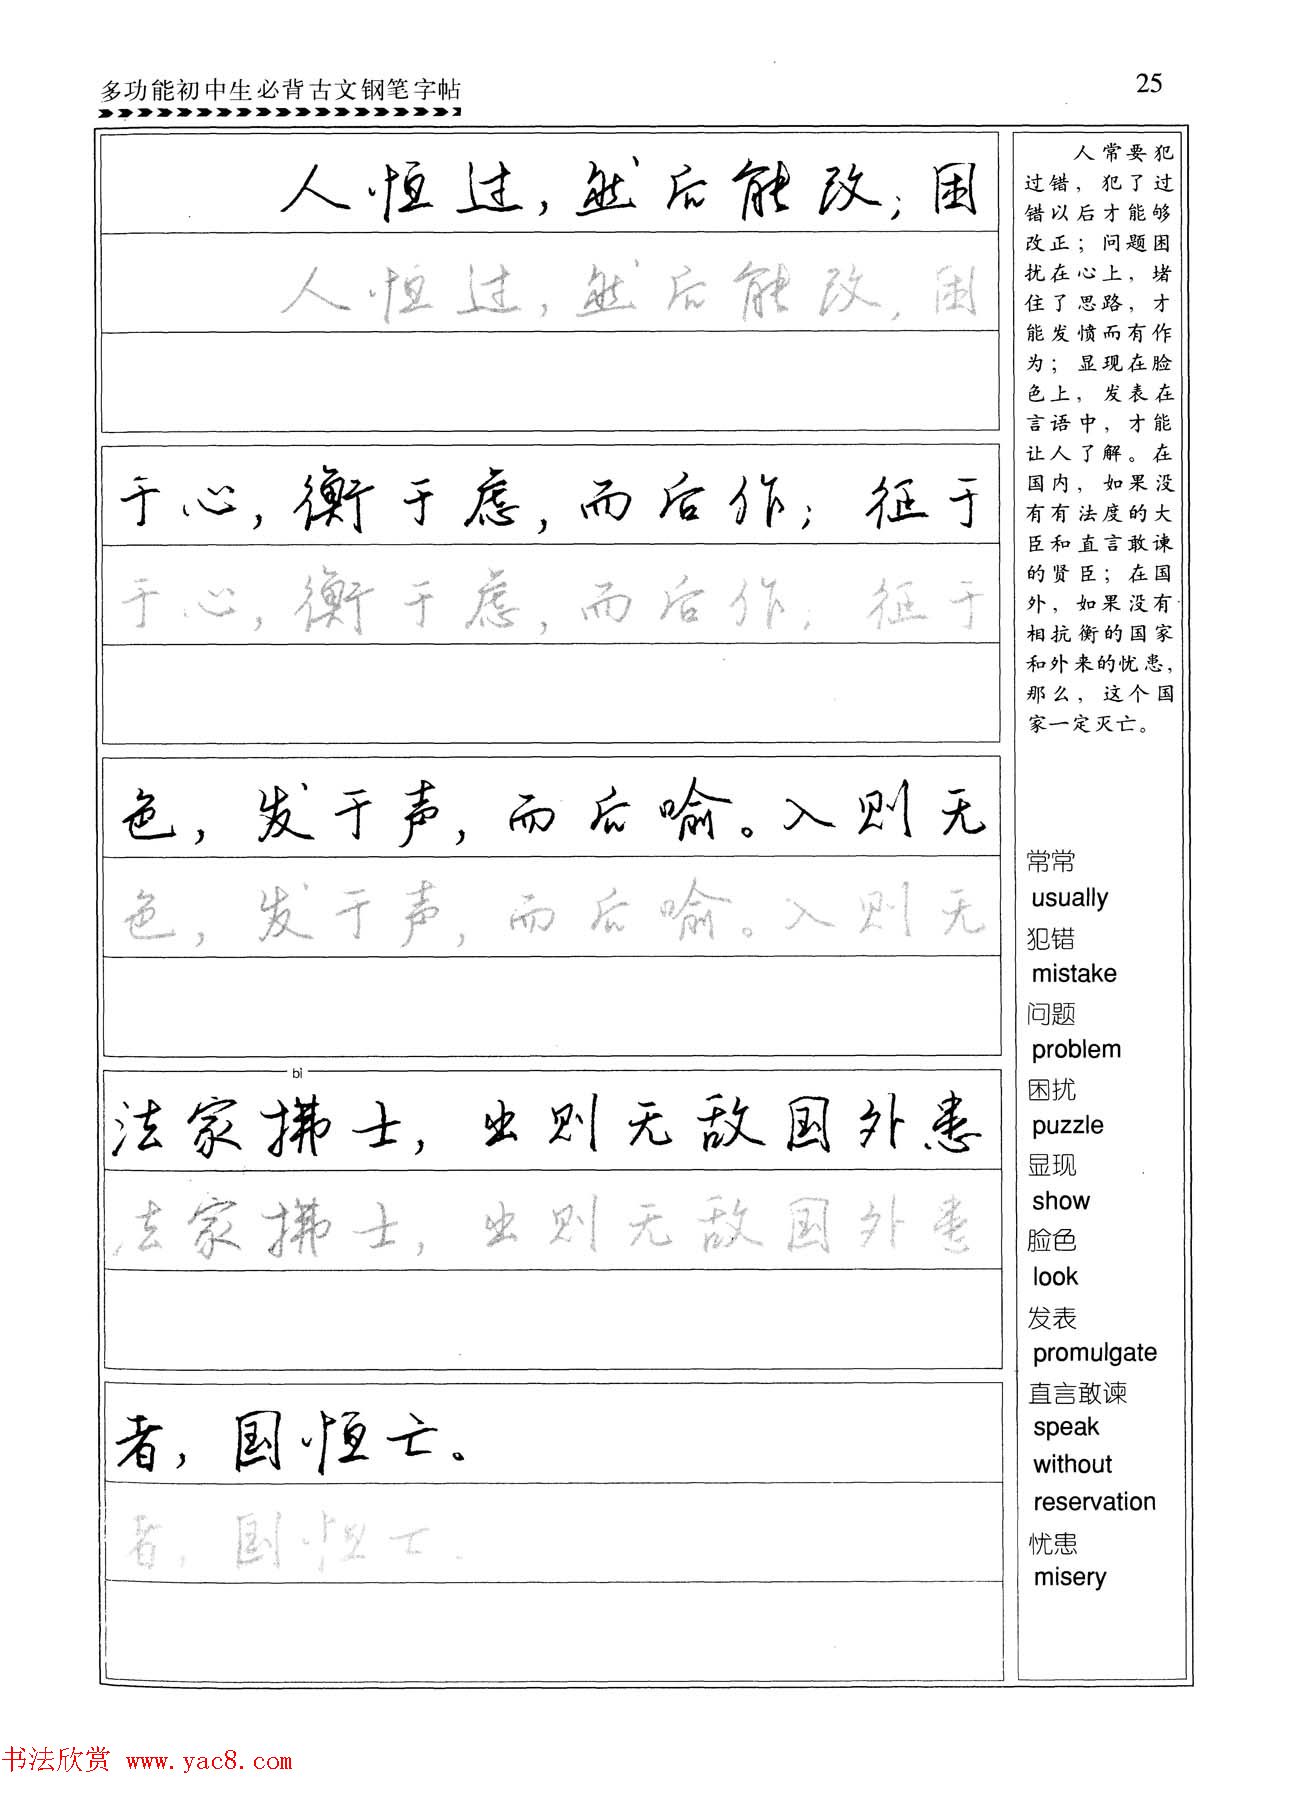 多功能初中生必背古文钢笔字帖
25
人恒过，然后能改；困
人恒过，然后能改；困
于心，衡于虑，而后作；征于
于心，衡于虑，而后作；征于
色，发于声，而后喻。入则无
色，发于声，而后喻。入则无
bì
法家拂士，出则无敌国外患
法家拂士，出则无敌国外患
者，国恒亡。
者，国恒亡。
人常要犯
过错，犯了过
错以后才能够
改正；问题困
扰在心上，堵
住了思路，才
能发愤而有作
为；显现在脸
色上，发表在
言语中，才能
让人了解。在
国内，如果没
有有法度的大
臣和直言敢谏
的贤臣；在国
外，如果没有
相抗衡的国家
和外来的忧患，
那么，这个国
家一定灭亡。
常常
usually
犯错
mistake
问题
problem
困扰
puzzle
显现
show
脸色
look
发表
promulgate
直言敢谏
speak
without
reservation
忧患
misery
书法欣赏 www.yac8.com